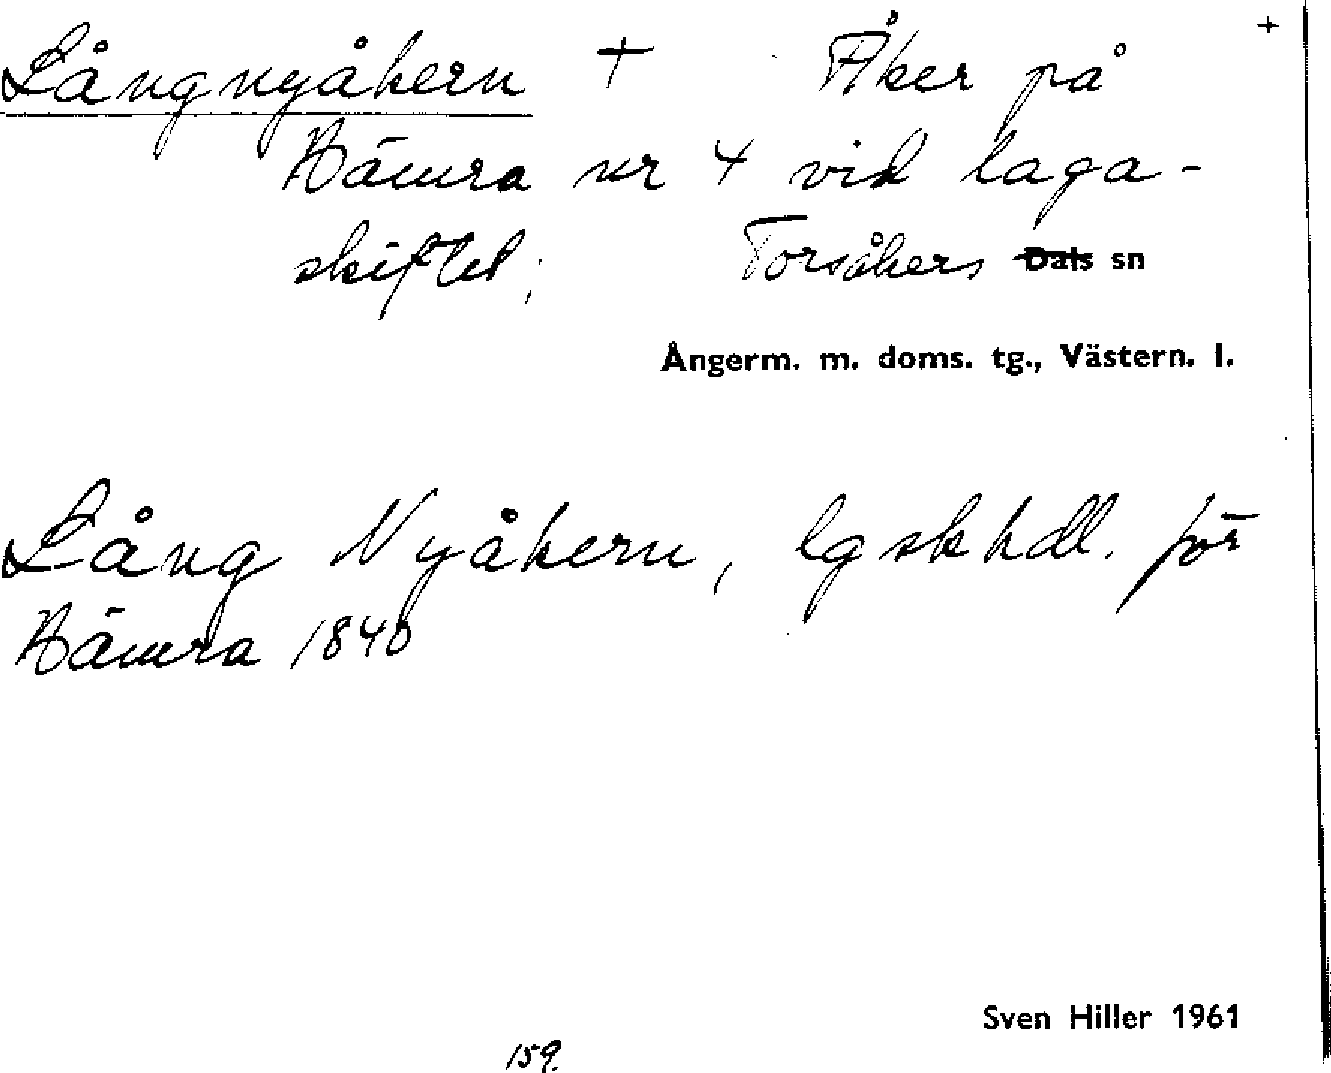 +
Långnyåkern † Åker på
Bämra nr 4 vid laga-
skiftet; Torsåkers Dals sn
Ångerm. m. doms. tg., Västern. l.
Lång Nyåkern, lgskhdl. för
Bämra 1840
Sven Hiller 1961
159.